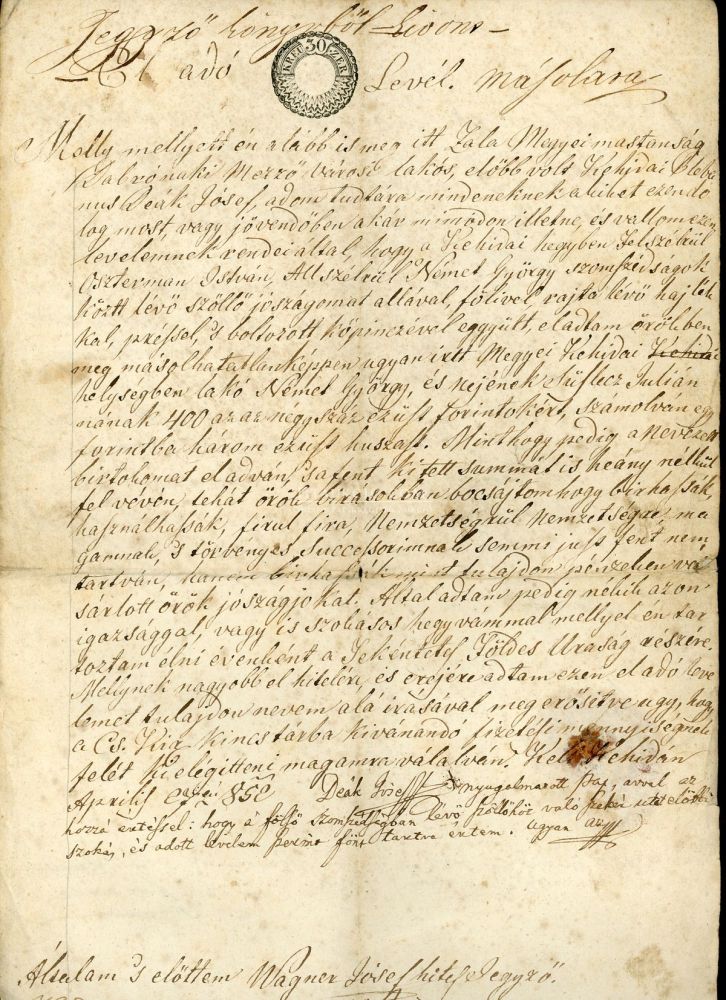 Jegyző könyvből Kivont
El adó Levél. másolata
30
KREUTZER
Melly mellyett én alább is meg itt Zala Megyei mastanság
Gabrónaki Mező városi lakos, előbb volt Kehidai Pleba
nus Deák József, adom tudtára mindeneknek a kiket ezen do
log most, vagy jövendőben akár mimódon illetne, és vallom ezen
levelemnek rendei által, hogy a Kehidai hegyben Felszélrül
Oszterman István, Allszélrül Német György szomszédságok
között lévő szöllő jószágomat allával, fölivel rajta lévő hajlék
kal, préssel, 's boltozott kőpinczével eggyütt, el adtam örökben
meg másolhatatlanképpen ugyan irtt Megyei Kehidai Kehidai
helységben lakó Német György, és nejének Julián
nának 400 az az négyszáz ezüst forintokért, számolván egy
forintba három ezüst huszast. Minthogy pedig a nevezett
birtokomat el adván, 's a fent kitett summát is heány nélkül
fel vévén, tehát örök birásokban bocsájtom hogy birhassák,
használhassák, firul fira, Nemzetségrül nemzetségre, ma
gamnak, 's törvényes Successorimnak semmi just fent nem
tartván, hanem birhassák mint tulajdon pénzeken vá
sárlott örök jószágjokat. Általadtam pedig nékik azon
igazsággal, vagy is szokásos hegyvámmal mellyet én tar
toztam élni évenként a Tekéntetes Földes Uraság részére.
Mellynek nagyobb el hitelére, és erejére adtam ezen el adó leve
lemet tulajdon nevem alá irásával meg erősitve ugy, hogy
a Cs. Kir kincstárba kivánando fizetési mennyiségnek
felét kielégitteni magamra válalván. Kelt Kehidán
Aprilis 850 Deák József nyugalmazott Pap, avval az
hozzá értéssel: hogy a felső szomszédságban lévő szőlőhöz való
szokás, és adott levelem szerint fönt tartva értem. Ugyan az
Általam 's előttem Wagner József hites Jegyző.